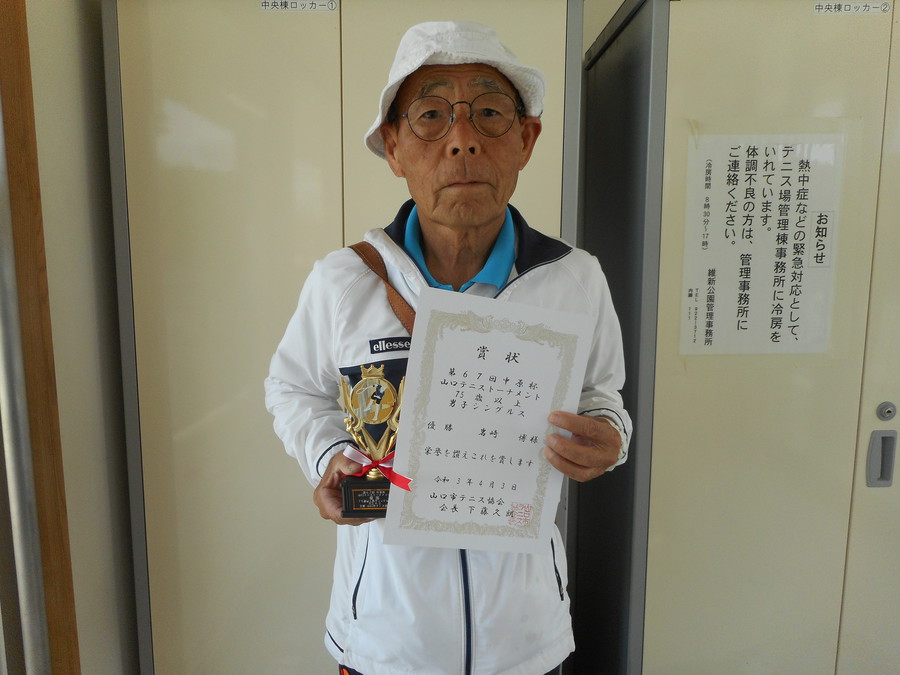 中央棟ロッカー①
中央棟ロッカー②
お知らせ
熱中症などの緊急対応として、
テニス場管理棟事務所に冷房を
いれています。
体調不良の方は、管理事務所に
ご連絡ください。
(冷房時間 8時30分~17時)
維新公園管理事務所
ellesse
賞状
第67回中原杯
山口テニストーナメント
75歳以上
男子シングルス
優勝 岩崎 博様
栄誉を讃えこれを賞します
令和3年4月3日
山口市テニス協会
会長 下藤久